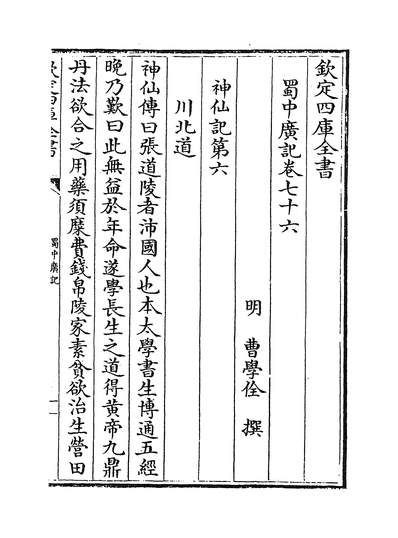 欽定四庫全書
蜀中廣記卷七十六
明 曹學佺 撰
神仙記第六
川北道
神仙傳曰張道陵者沛國人也本太學書生博通五經
晚乃歎曰此無益於年命遂學長生之道得黄帝九鼎
丹法欲合之用藥須糜費錢帛陵家素貧欲治生營田
欽定四庫全書
蜀中廣記
一